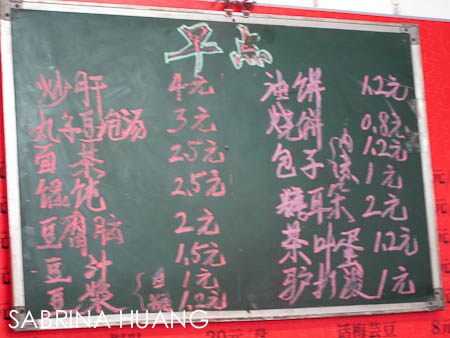 早点
炒肝 4元
丸子豆泡汤 3元
面茶 2.5元
馄饨 2.5元
豆腐脑 2元
豆汁 1.5元
豆浆 白 1元
糖 1.2元
油饼 1.2元
烧饼 0.8元
包子 肉 1.2元
素 1元
糖耳朵 2元
茶叶蛋 1.2元
驴打滚 1元
SABRINA HUANG
20元/盘 话梅芸豆 8元